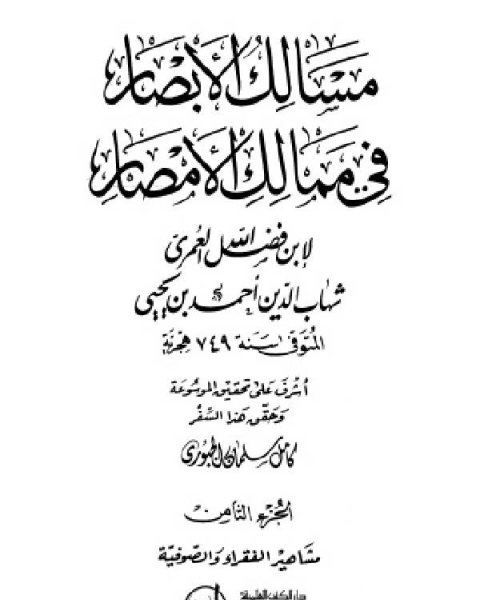 مسالك الأبصار
في ممالك الأمصار
لابن فضل الله العمري
شهاب الدين أحمد بن يحيى
المتوفى سنة ٧٤٩ هجرية
أشرف على تحقيق الموسوعة
وحقق هذا السفر
كامل سلمان الجبوري
الجزء الثامن
مشاهير الفقراء والصوفية
دار الكتب العلمية